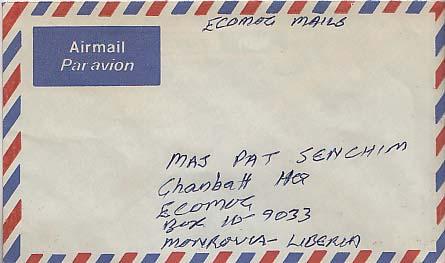 ECOMOG MAILS
Airmail
Par avion
MAJ PAT SENCHIM
Ghanbatt HQ
ECOMOG
Box 10-9033
MONROVIA - LIBERIA